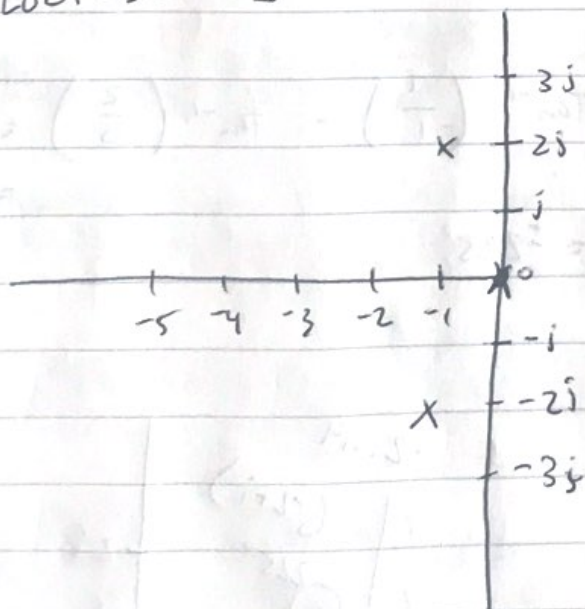 3j
x 2j
j
x 0
-5 -4 -3 -2 -1
-j
x -2j
-3j